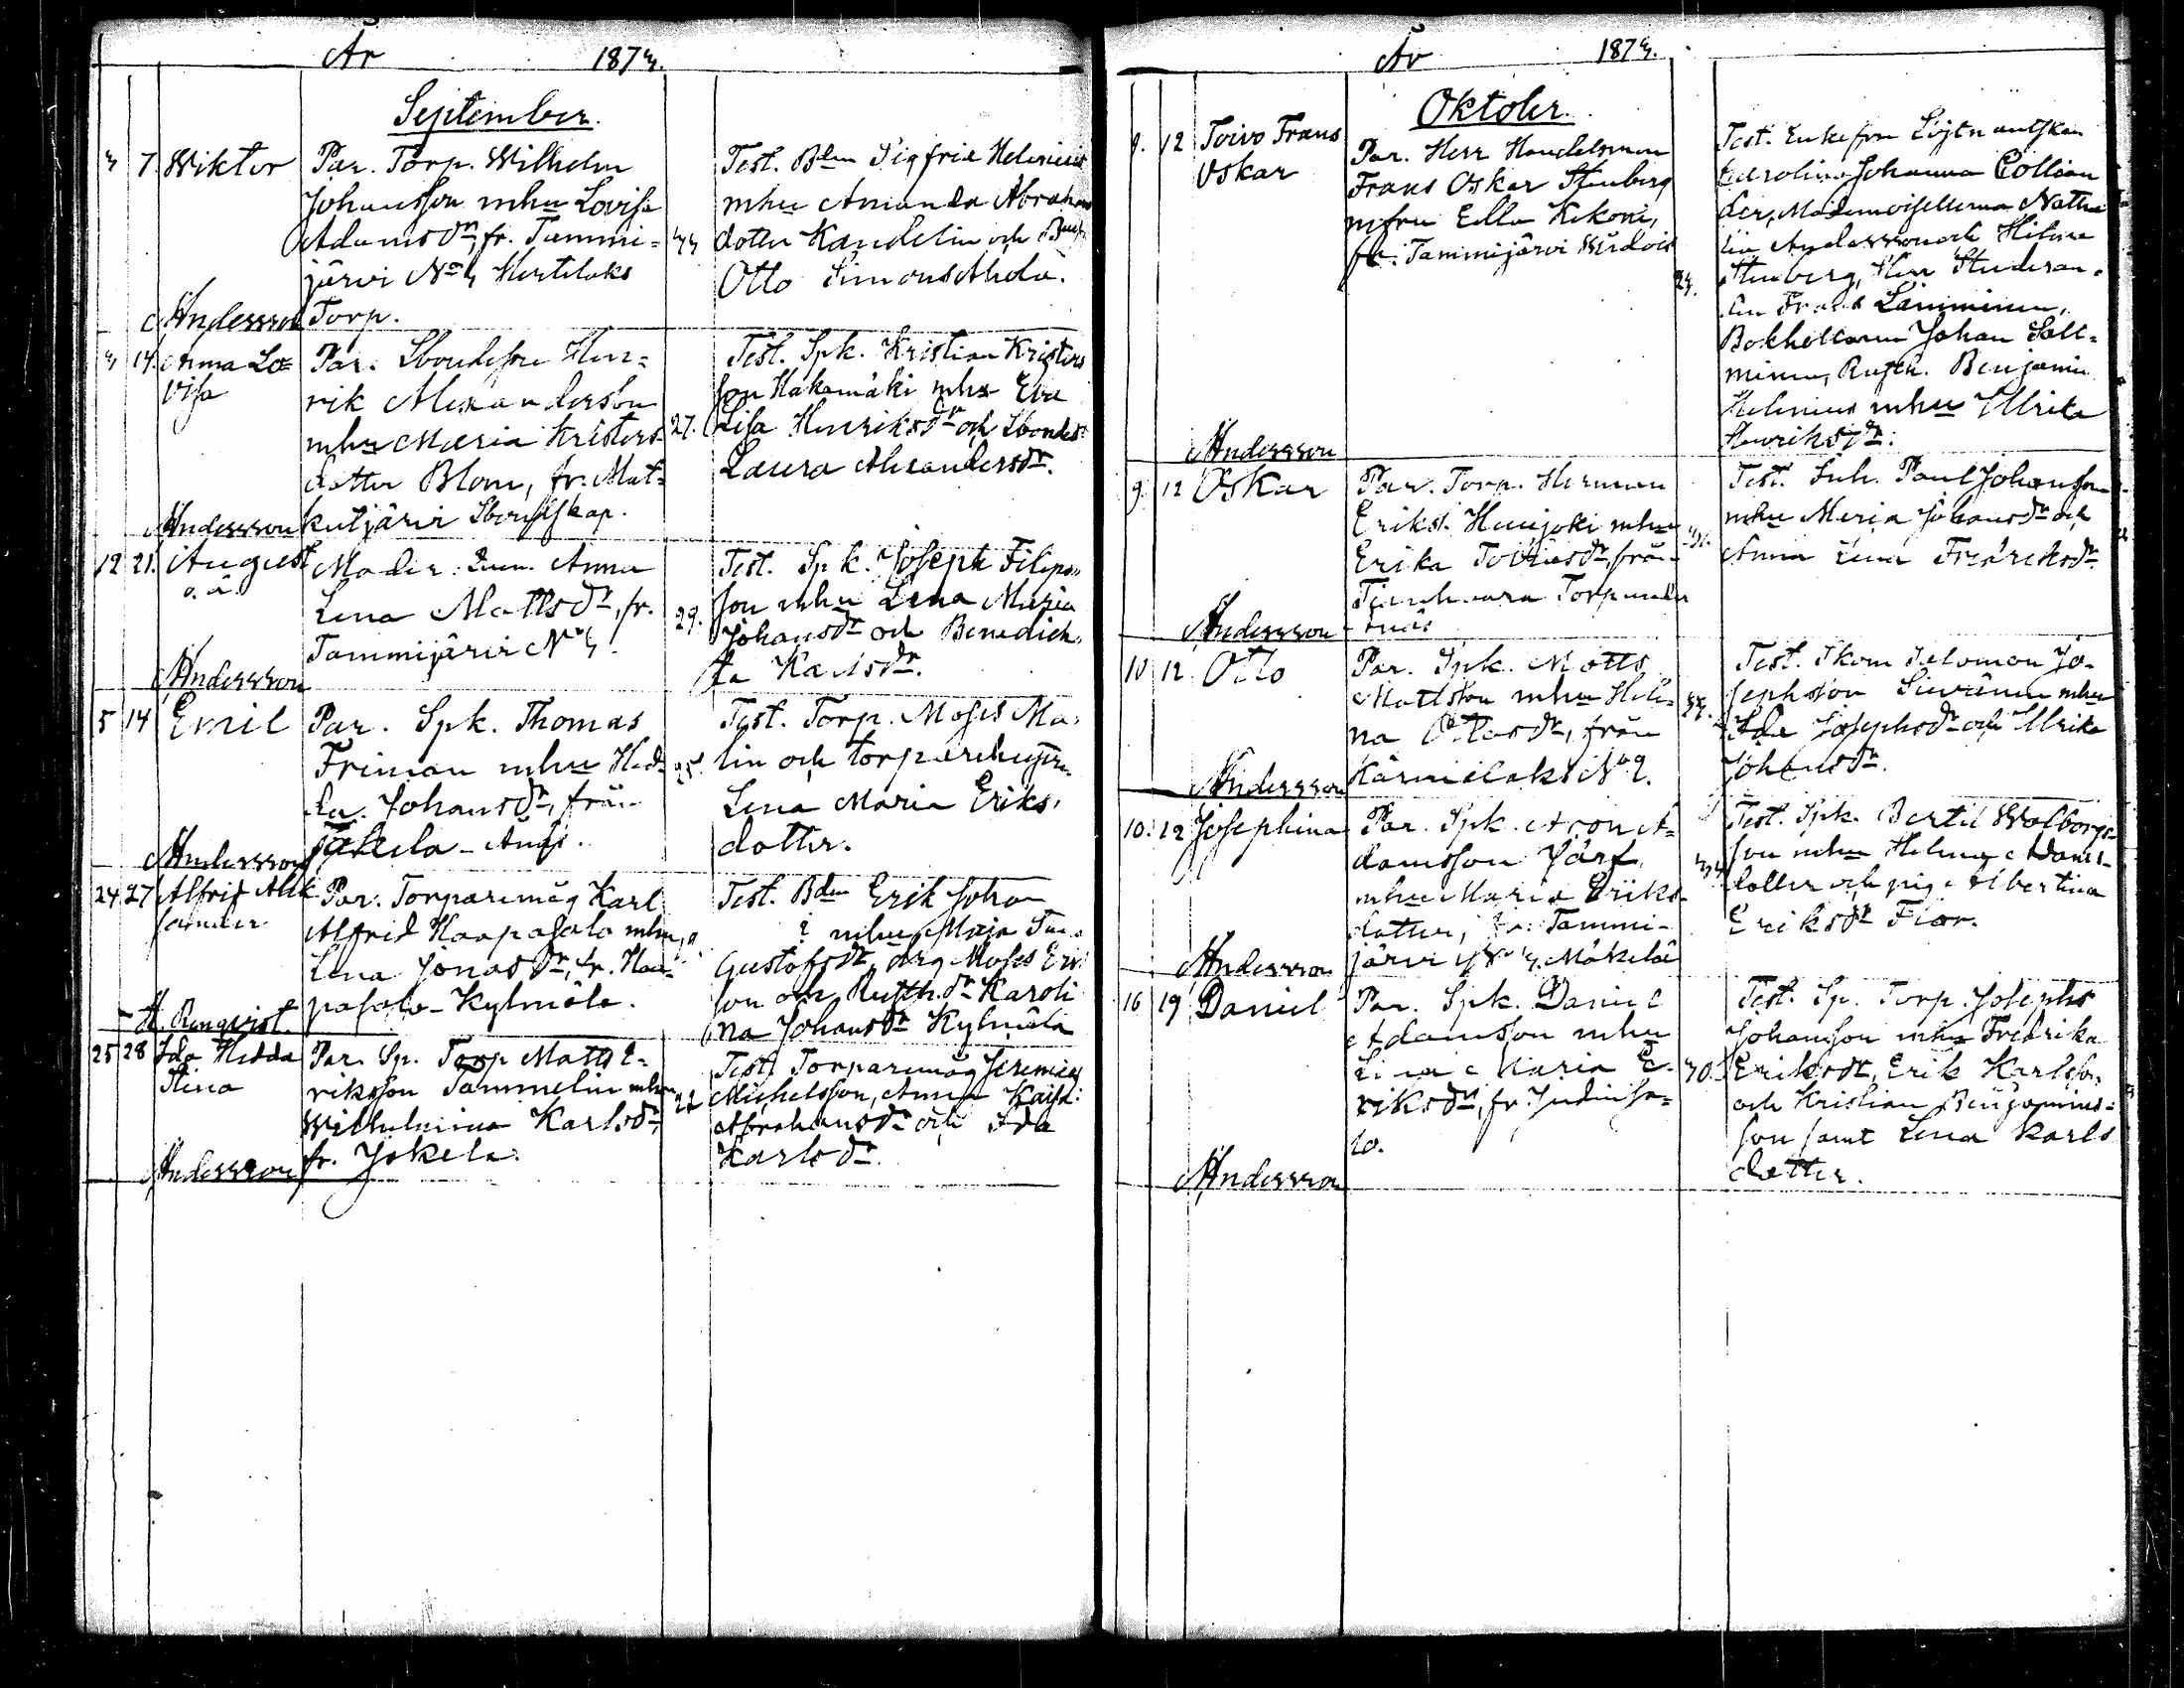 År 1873.
September.
3 7. Wiktor
Par. Torp. Wilhelm
Johansson mhu Lovisa
Adamsdr, fr. Tammi=
järvi No 3 Hertilaks
Torp.
Andersson
33
Test. Bdn Sigfrid Helenius
mhu Amanda Abrahams
dotter Kandelin och
Otto Simons Ahola.
3 14. Anna Lo=
visa
Par. Sbondeson Hen=
rik Alexandersson
mhu Maria Kristers
dotter Blom, fr. Mat=
kutjärvi Sbondskap.
Andersson
27.
Test. Spk. Kristian Kristers
son Hakamäki mhu Eva
Lisa Henriksdr och Sbondes
Laura Alexandersdr.
12 21. August
o. ä.
Moder: Anna
Lena Mattsdr, fr.
Tammijärvi No 3.
Andersson
29.
Test. Spk. Joseph Filips=
son mhu Lena Maria
Johansdr och Benedich=
ta Karlsdr.
5 14 Emil
Par. Spk. Thomas
Friman mhu Hed=
da Johansdr, från
Jokela-
Andersson
25.
Test. Torp. Moses Ma=
lin och torparehustrun
Lena Maria Eriks=
dotter.
24 27 Alfrid Alek
sander
Par. Torparemåg Karl
Alfrid Haapasalo mhu
Lena Jonasdr, fr. Haa=
pasalo-Kylmälä.
A. Renqvist.
Test. Bdn Erik Johan
? mhu Maja
Gustafsdr, drg Moses Eriks
son och Rusth.dr Karoli
na Johansdr Kylmälä
25 28 Ida Hedda
Stina
Par. Sp. Torp Matts E=
riksson Tammelin mhu
Wilhelmina Karlsdr,
fr. Jokela.
Andersson
22
Test. Torparemåg Jeremias
Michelsson, Anna Kaisa
Abrahamsdr och Ida
Karlsdr.
År 1873.
Oktober.
9. 12 Toivo Frans
Oskar
Par. Herr Handelsman
Frans Oskar Stenberg
mfru Ella Kekoni,
fr. Tammijärvi
Andersson
23.
Test. Enkefru Löjtnantskan
Karolina Johanna Collian
der, Mademoisellerna Natha
lia Andersson och Hilma
Stenberg, Herr Studeran=
den Frans Lamminen,
Bokhållaren Johan Sall=
minen, Rusth. Benjamin
Helenius mhu Ulrika
Henriksdr.
9. 12 Oskar
Par. Torp. Herman
Eriks. Huijoki mhu
Erika Tobiasdr, från
Torp under
Andersson
31.
Test. Inh. Paul Johansson
mhu Maria Johansdr och
Anna Lena Fredriksdr.
10 12 Otto
Par. Spk. Matts
Mattsson mhu Hele=
na Ottosdr, från
Kärmelaks No 2.
Andersson
33.
Test. Skom Salomon Jo=
sephsson Sievänen mhu
Ida Josephsdr och Ulrika
Johansdr.
10. 12 Josephina
Par. Spk. Aron A=
damsson Järf
mhu Maria Eriks
dotter, fr. Tammi=
järvi No 3, Mäkelä
Andersson
Test. Spk. Bertil Walborgs
son mhu Helena Adams=
dotter och pig. Albertina
Eriksdr Flor.
16 19 Daniel
Par. Spk. Daniel
Adamsson mhu
Lena Maria E=
riksdr, fr. Judinsa=
lo.
Andersson
30.
Test. Sp. Torp. Josephs
Johansson mhu Fredrika
Eriksdr, Erik Karlsson
och Kristian Benjamins=
son samt Lena Karls
dotter.